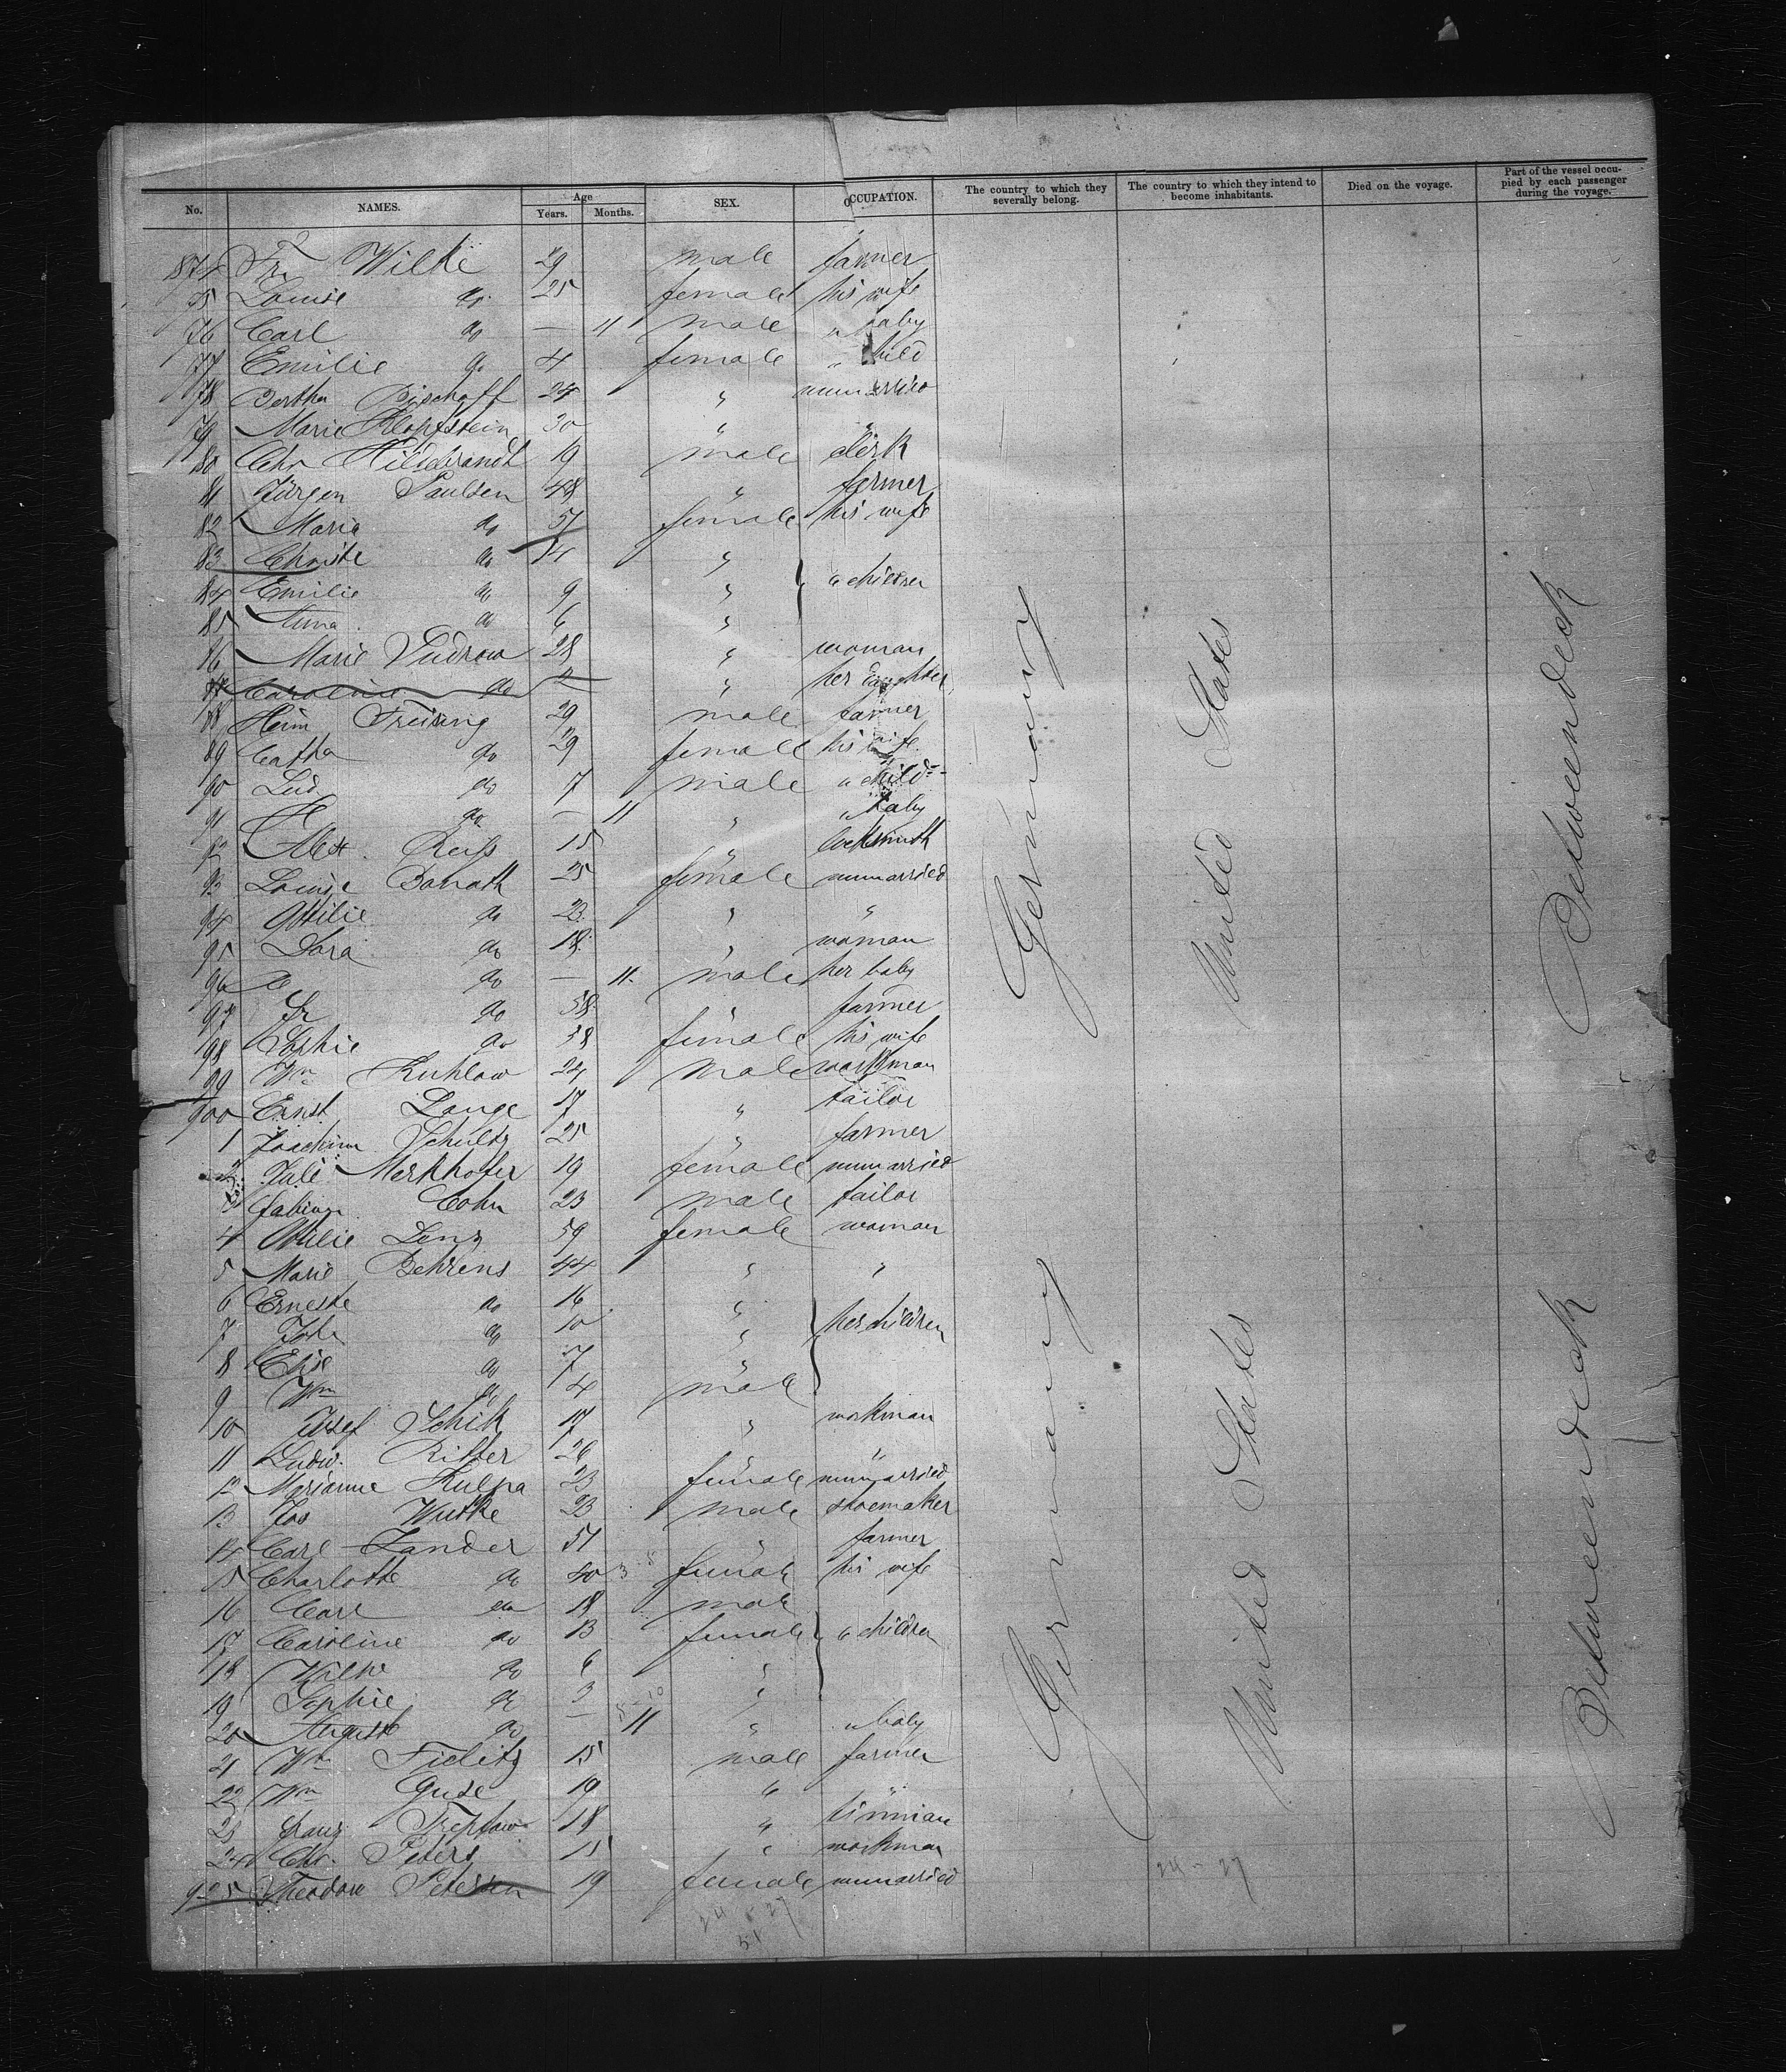 No. NAMES. Age Years. Months. SEX. OCCUPATION. The country to which they severally belong. The country to which they intend to become inhabitants. Died on the voyage. Part of the vessel occupied by each passenger during the voyage.
874 Fr. Wilke 29 male farmer
75 Louise do 25 female his wife
76 Carl do — 11 male " baby
77 Emilie do 4 female " child
78 Bertha Bischoff 24 " unmarried
79 Marie Klopfstein 30 " "
80 Chr Hildebrandt 19 male clerk
81 Jürgen Paulsen 48 " farmer
82 Maria do 51 female his wife
83 Christe do 14 "
84 Emilie do 9 " " children
85 Anna do 6 "
86 Marie Ludrow 28 " woman
87 Caroline do " her daughter
88 Heinr 29 male farmer
89 Catha do 29 female his wife
90 Lud. do 7 male " child
91 do — 11 " " baby
92 Alex Reiss 15 " locksmith
93 Louise Borrath 25 female unmarried
94 Ottilie do 23 " "
95 Dora do 18 " woman
96 do — 11 male her baby
97 Fr do 58 " farmer
98 Sophie do 58 female his wife
99 Wm Kuhlow 24 male workman
900 Ernst Lange 17 " tailor
1 Joachim Schultz 25 " farmer
2 Julie Merkhofer 19 female unmarried
3 Fabian Cohn 23 male tailor
4 Ottilie Lenz 59 female woman
5 Marie Behrens 44 " "
6 Erneste do 16 "
7 Joh do 10 " her children
8 Elise do 7 "
9 Wm do 4 male
10 Josef Schik 17 " workman
11 Ludw. Ritter 26 "
12 Marianne Kulpa 23 female unmarried
13 Jos Wutke 23 male shoemaker
14 Carl Zander 51 " farmer
15 Charlotte do 40 female his wife
16 Carl do 18 male
17 Caroline do 13 female " children
18 Wilhe do 6 "
19 Sophie do 3 "
20 August do — 11 " " baby
21 Wm Fielitz 15 male farmer
22 Wm Guse 19 " "
23 Franz Treptow 18 "
24 Chr. Peters 15 " workman
925 Theodore Petersen 19 female unmarried
Germany
United States
Betweendeck
Germany
United States
Betweendeck
24 - 27
24 - 27
51